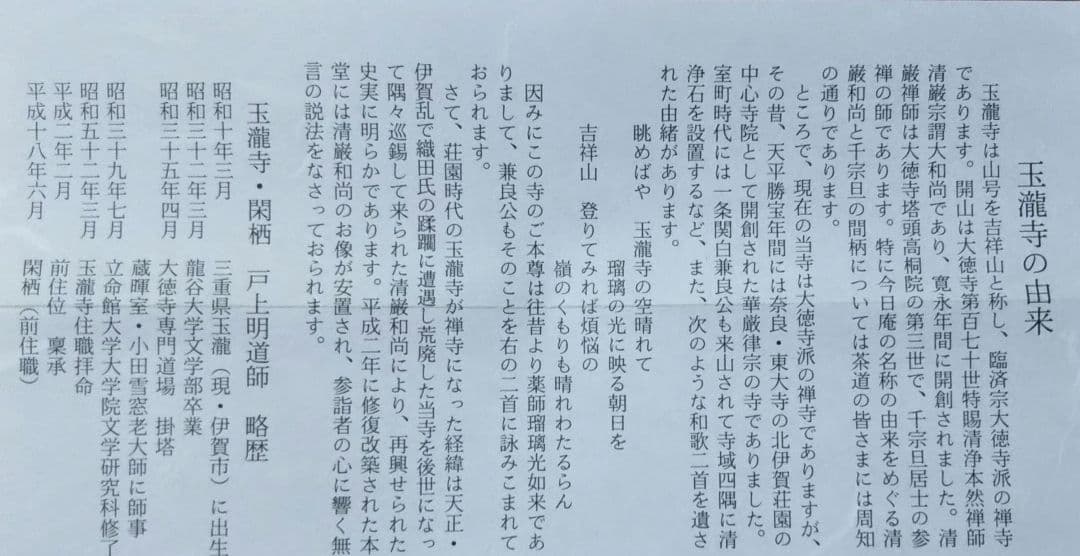 玉瀧寺の由来
玉瀧寺は山号を吉祥山と称し、臨済宗大徳寺派の禅寺
であります。開山は大徳寺第百七十世特賜清浄本然禅師
清巌宗謂大和尚であり、寛永年間に開創されました。清
巌禅師は大徳寺塔頭高桐院の第三世で、千宗旦居士の参
禅の師であります。特に今日庵の名称の由来をめぐる清
巌和尚と千宗旦の間柄については茶道の皆さまには周知
の通りであります。
ところで、現在の当寺は大徳寺派の禅寺でありますが、
その昔、天平勝宝年間には奈良・東大寺の北伊賀荘園の
中心寺院として開創された華厳律宗の寺でありました。
室町時代には一条関白兼良公も来山されて寺域四隅に清
浄石を設置するなど、また、次のような和歌二首を遺さ
れた由緒があります。
眺めばや　玉瀧寺の空晴れて
瑠璃の光に映る朝日を
吉祥山　登りてみれば煩悩の
嶺のくもりも晴れわたるらん
因みにこの寺のご本尊は往昔より薬師瑠璃光如来であ
りまして、兼良公もそのことを右の二首に詠みこまれて
おられます。
さて、荘園時代の玉瀧寺が禅寺になった経緯は天正・
伊賀乱で織田氏の蹂躙に遭遇し荒廃した当寺を後世になっ
て隅々巡錫して来られた清巌和尚により、再興せられた
史実に明らかであります。平成二年に修復改築された本
堂には清巌和尚のお像が安置され、参詣者の心に響く無
言の説法をなさっております。
玉瀧寺・閑栖　戸上明道師　略歴
昭和十年三月　三重県玉瀧（現・伊賀市）に出生
昭和三十二年三月　龍谷大学文学部卒業
昭和三十五年四月　大徳寺専門道場　掛塔
蔵暉室・小田雪窓老大師に師事
昭和三十九年七月　立命館大学大学院文学研究科修了
昭和五十二年三月　玉瀧寺住職拝命
平成二年二月　前住位　稟承
平成十八年六月　閑栖（前住職）